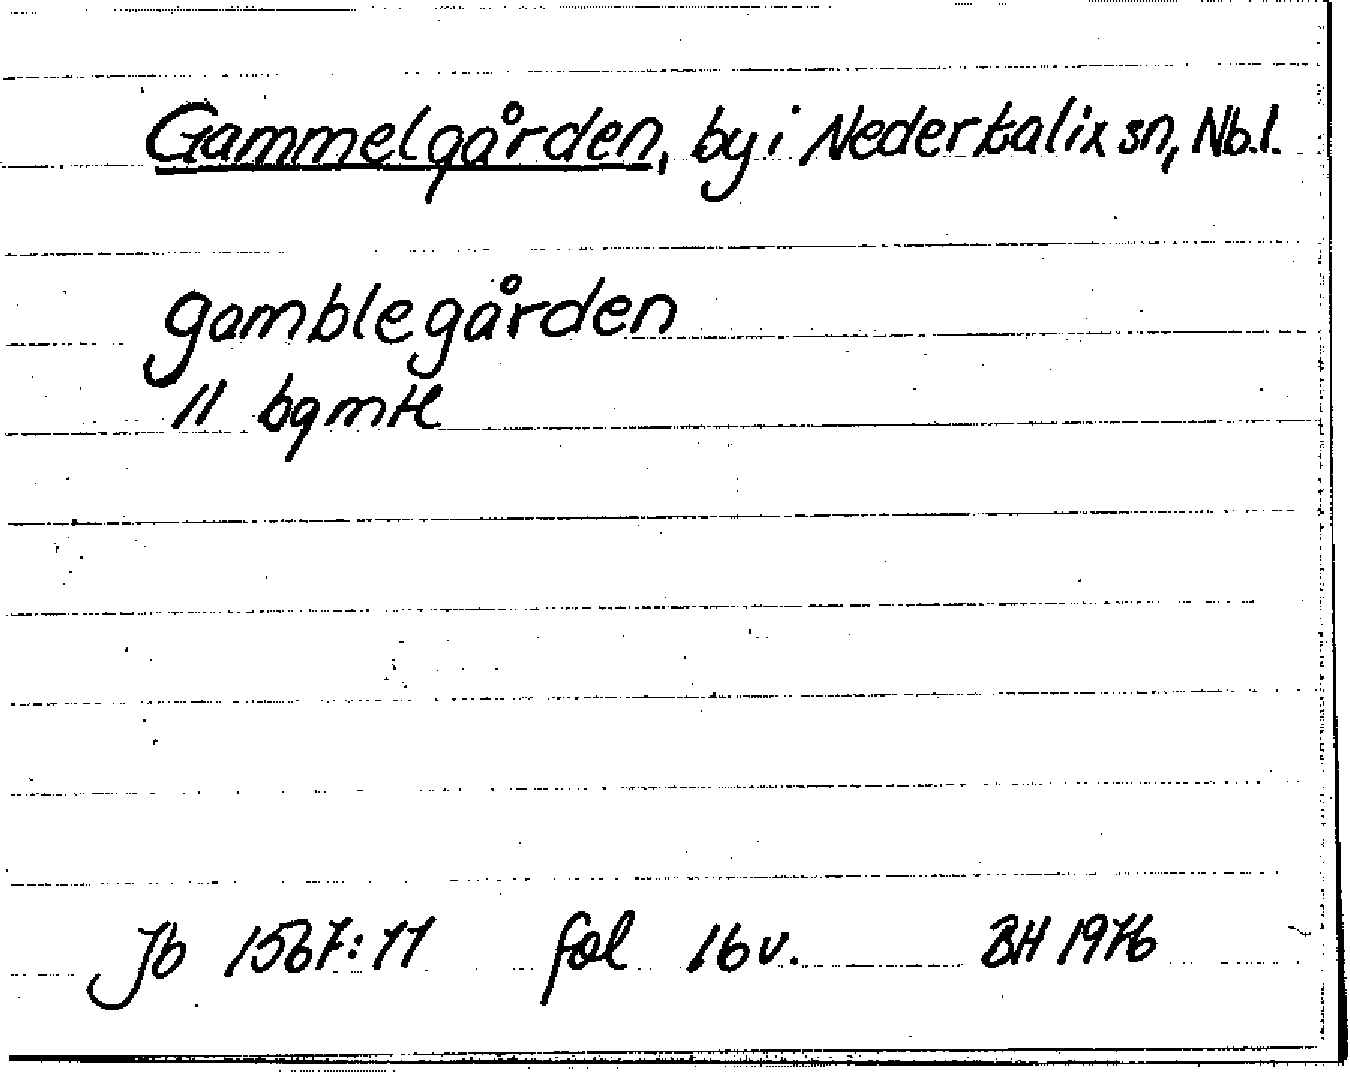 Gammelgården, by i Nederkalix sn, Nb.l.
gamblegården
11 bgmtl
Jb 1567:11 fol 16v. BH 1976